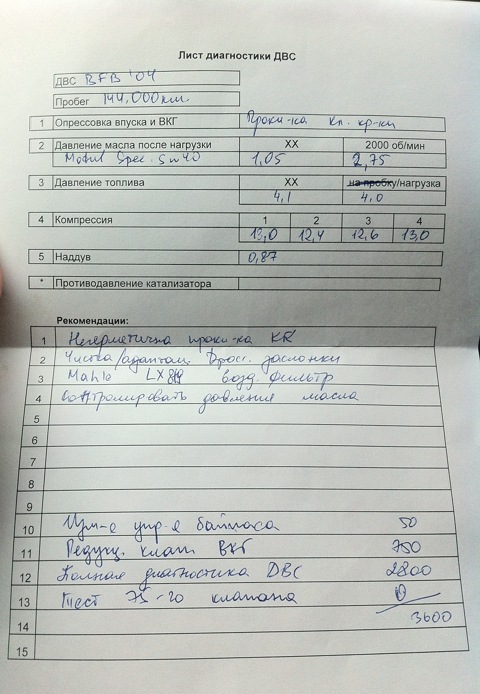 Лист диагностики ДВС
ДВС BFB '04
Пробег 144.000 км.
1 Опрессовка впуска и ВКГ Прокл-ка кл. кр-ки
2 Давление масла после нагрузки ХХ 2000 об/мин
Motul Spec. 5w40 1,05 2,75
3 Давление топлива ХХ на пробку/нагрузка
4,1 4,0
4 Компрессия 1 2 3 4
13,0 12,4 12,6 13,0
5 Наддув 0,87
* Противодавление катализатора
Рекомендации:
1 Негерметична прокл-ка КК
2 Чистка/адаптац. Дросс. заслонки
3 Mahle LX возд. фильтр
4 Контролировать давление масла
5
6
7
8
9
10 упр-я байпаса 50
11 Редукц. клап ВКГ 750
12 Полная диагностика ДВС 2800
13 Тест 75-го клапана 0
14 3600
15